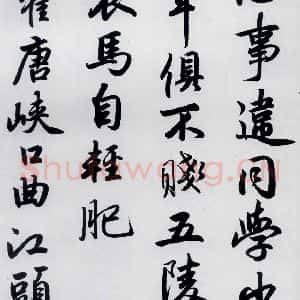 事違同學少
年俱不賤五陵
衣馬自輕肥
瞿唐峽口曲江頭